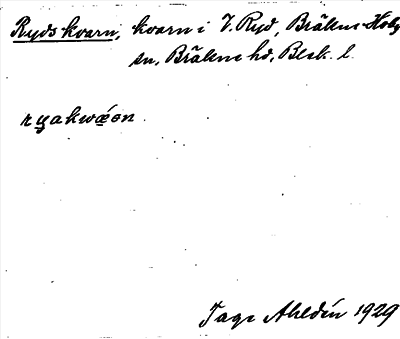 Ryds kvarn, kvarn i V. Ryd, Bräkne-Hoby
sn, Bräkne hd, Blek. l.
Tage Ahldin 1929